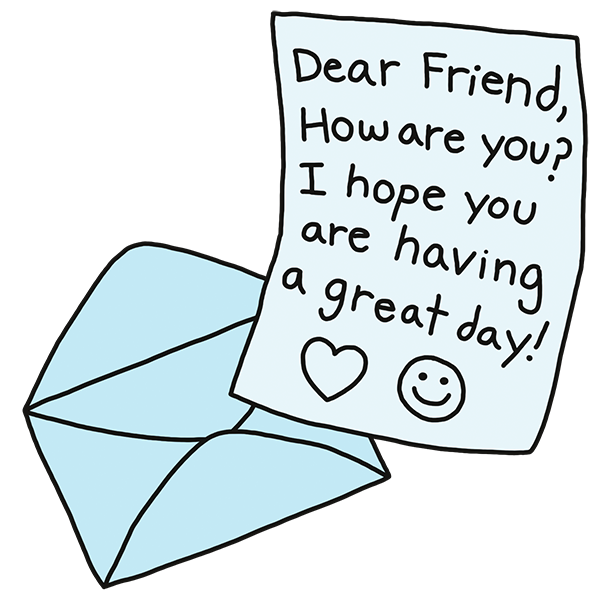 Dear Friend,
How are you?
I hope you
are having
a great day!